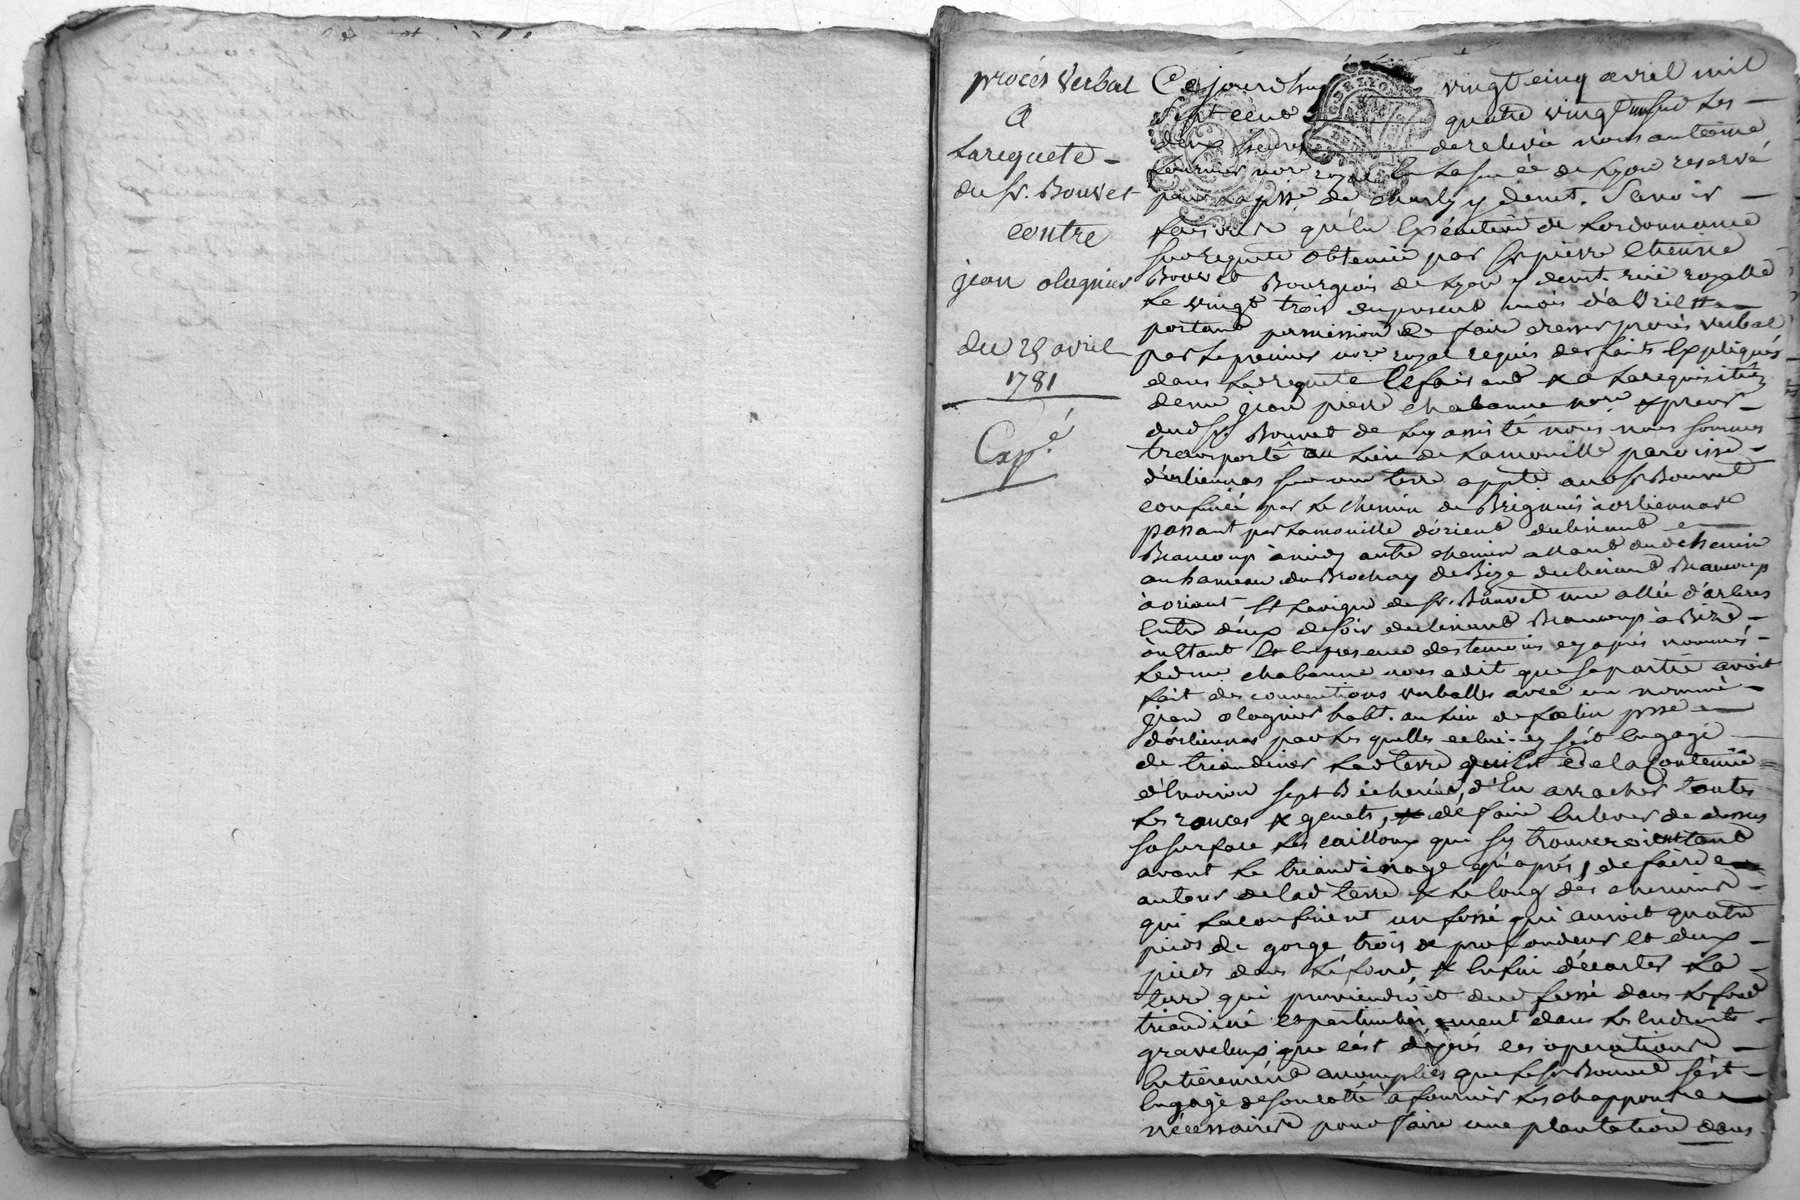 procés verbal
a
la requete
du sr. Bouvet
contre
jean olagnier
du 25 avril
1781
Exp.é
Ce jourd'huy vingt cinq avril mil
sept cent quatre vingt un sur les
deux heures de relevée nous antoine
nore royal en la sené de Lyon reservé
pour la psse de charly y demt. Savoir
faisons qu'en Exécution de Lordonnance
sur requete obtenüe par sr pierre Etienne
Bouvet Bourgeois de Lyon y demt. rüe royalle
Le vingt trois du present mois d'avril
portant permission de faire dresser procés verbal
par Le premier nore royal requis des faits Expliqués
dans Lad requete Ce faisant & a La requisition
de me jean pierre chabanne nore & procr
dud sr. Bouvet de Luy assisté nous nous sommes
transporté au Lieu de Lamouille paroisse
d'orliennas sur une terre appte aud sr Bouvet
confinée par Le chemin de Brignais a orliennas
passant par Lamouille d'orient declinant
Beaucoup à midy autre chemin allant dud chemin
au hameau du Brochay de Bize declinant Beaucoup
à oriant Et La vigne de sr. Bouvet une allée d'arbres
Entre deux de soir declinant Beaucoup à Bize
ou Etant Et En presence des temoins cy après nommés
Led me chabanne nous a dit que sa partie avoit
fait des conventions verballes avec un nommé
jean olagnier habt. au Lieu de psse
d'orliennas par Les quelles celui-cy s'est Engagé
de triandiner Lad terre qui Est de la Contenüe
d'Environ sept Bicherées, d'En arracher toutes
Les ronces & genets, & de faire Enlever de dessus
sa surface Les cailloux qui s'y trouveroient tant
avant Le triandinage qu'après, de faire
autour de lad terre & Le long des chemins
qui La confinent un fossé qui auroit quatre
pieds de gorge trois de profondeur Et deux
pieds dans Le fond, & Enfin d'écarter La
terre qui proviendroit dud fossé dans Le fond
triandiné Et particulierement dans Les Endroits
graveleux, que c'est après ces operations
Entierement accomplies que Le sr Bouvet s'est
Engagé de son cotté à fournir Les chappons
nécessaires pour faire une plantation dans